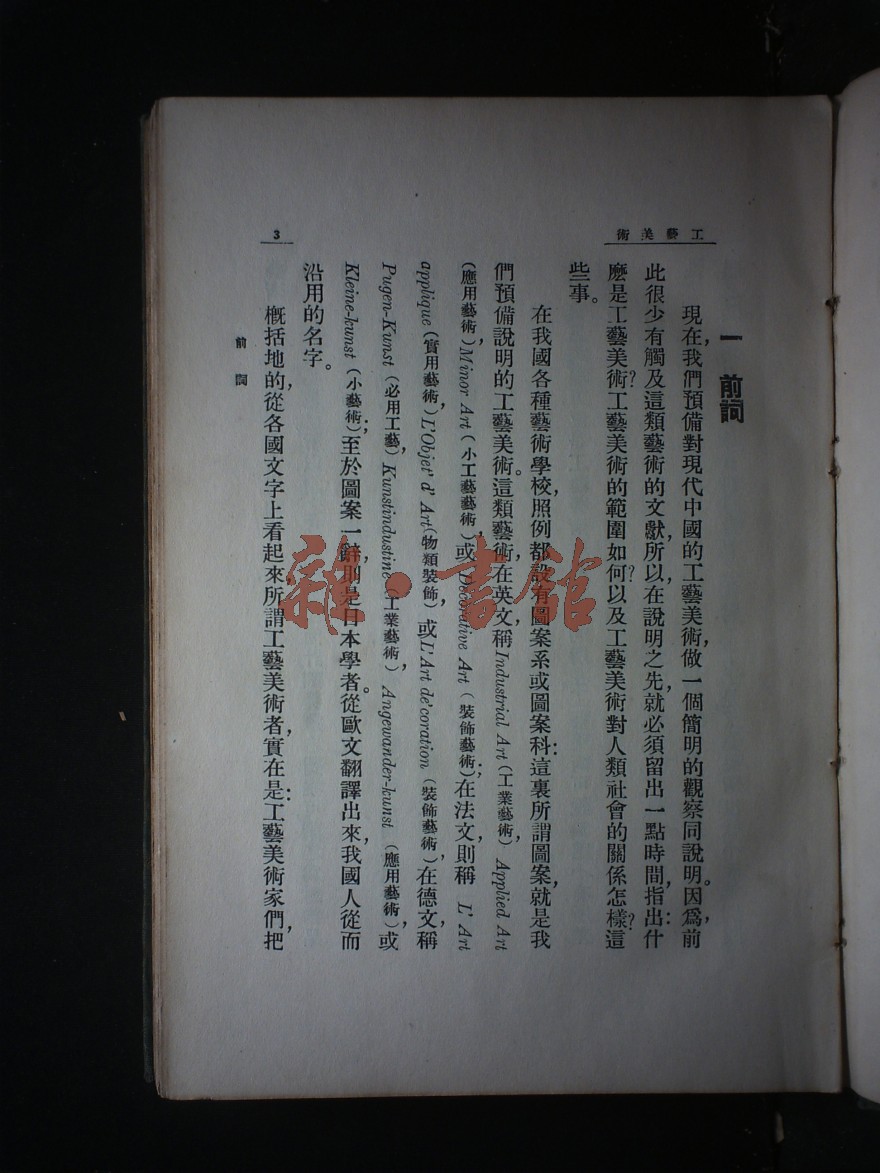 工藝美術
一　前詞
現在，我們預備對現代中國的工藝美術，做一個簡明的觀察同說明。因爲前，
此很少有觸及這類藝術的文獻，所以在說明之先，就必須留出一點時間，指出：什
麽是工藝美術？工藝美術的範圍如何？以及工藝美術對人類社會的關係怎樣？這
些事。
在我國各種藝術學校，照例都設有圖案系或圖案科：這裏所謂圖案，就是我
們預備說明的工藝美術。這類藝術，在英文，稱Industrial Art（工業藝術），Applied Art
（應用藝術），Minor Art（小工藝藝術），或Decorative Art（裝飾藝術）；在法文，則稱 L' Art
applique（實用藝術），L'Objet' d' Art（物類裝飾）或L'Art de'coration（裝飾藝術），在德文，稱
Pugen-Kunst（必用工藝），Kunstindustine（工業藝術），Angewander-kunst（應用藝術），或
Kleine-kunst（小藝術）；至於圖案一辭，則是日本學者。從歐文翻譯出來，我國人從而
沿用的名字。
概括地的，從各國文字上看起來，所謂工藝美術者，實在是：工藝美術家們，把
前詞
3
雜·書館